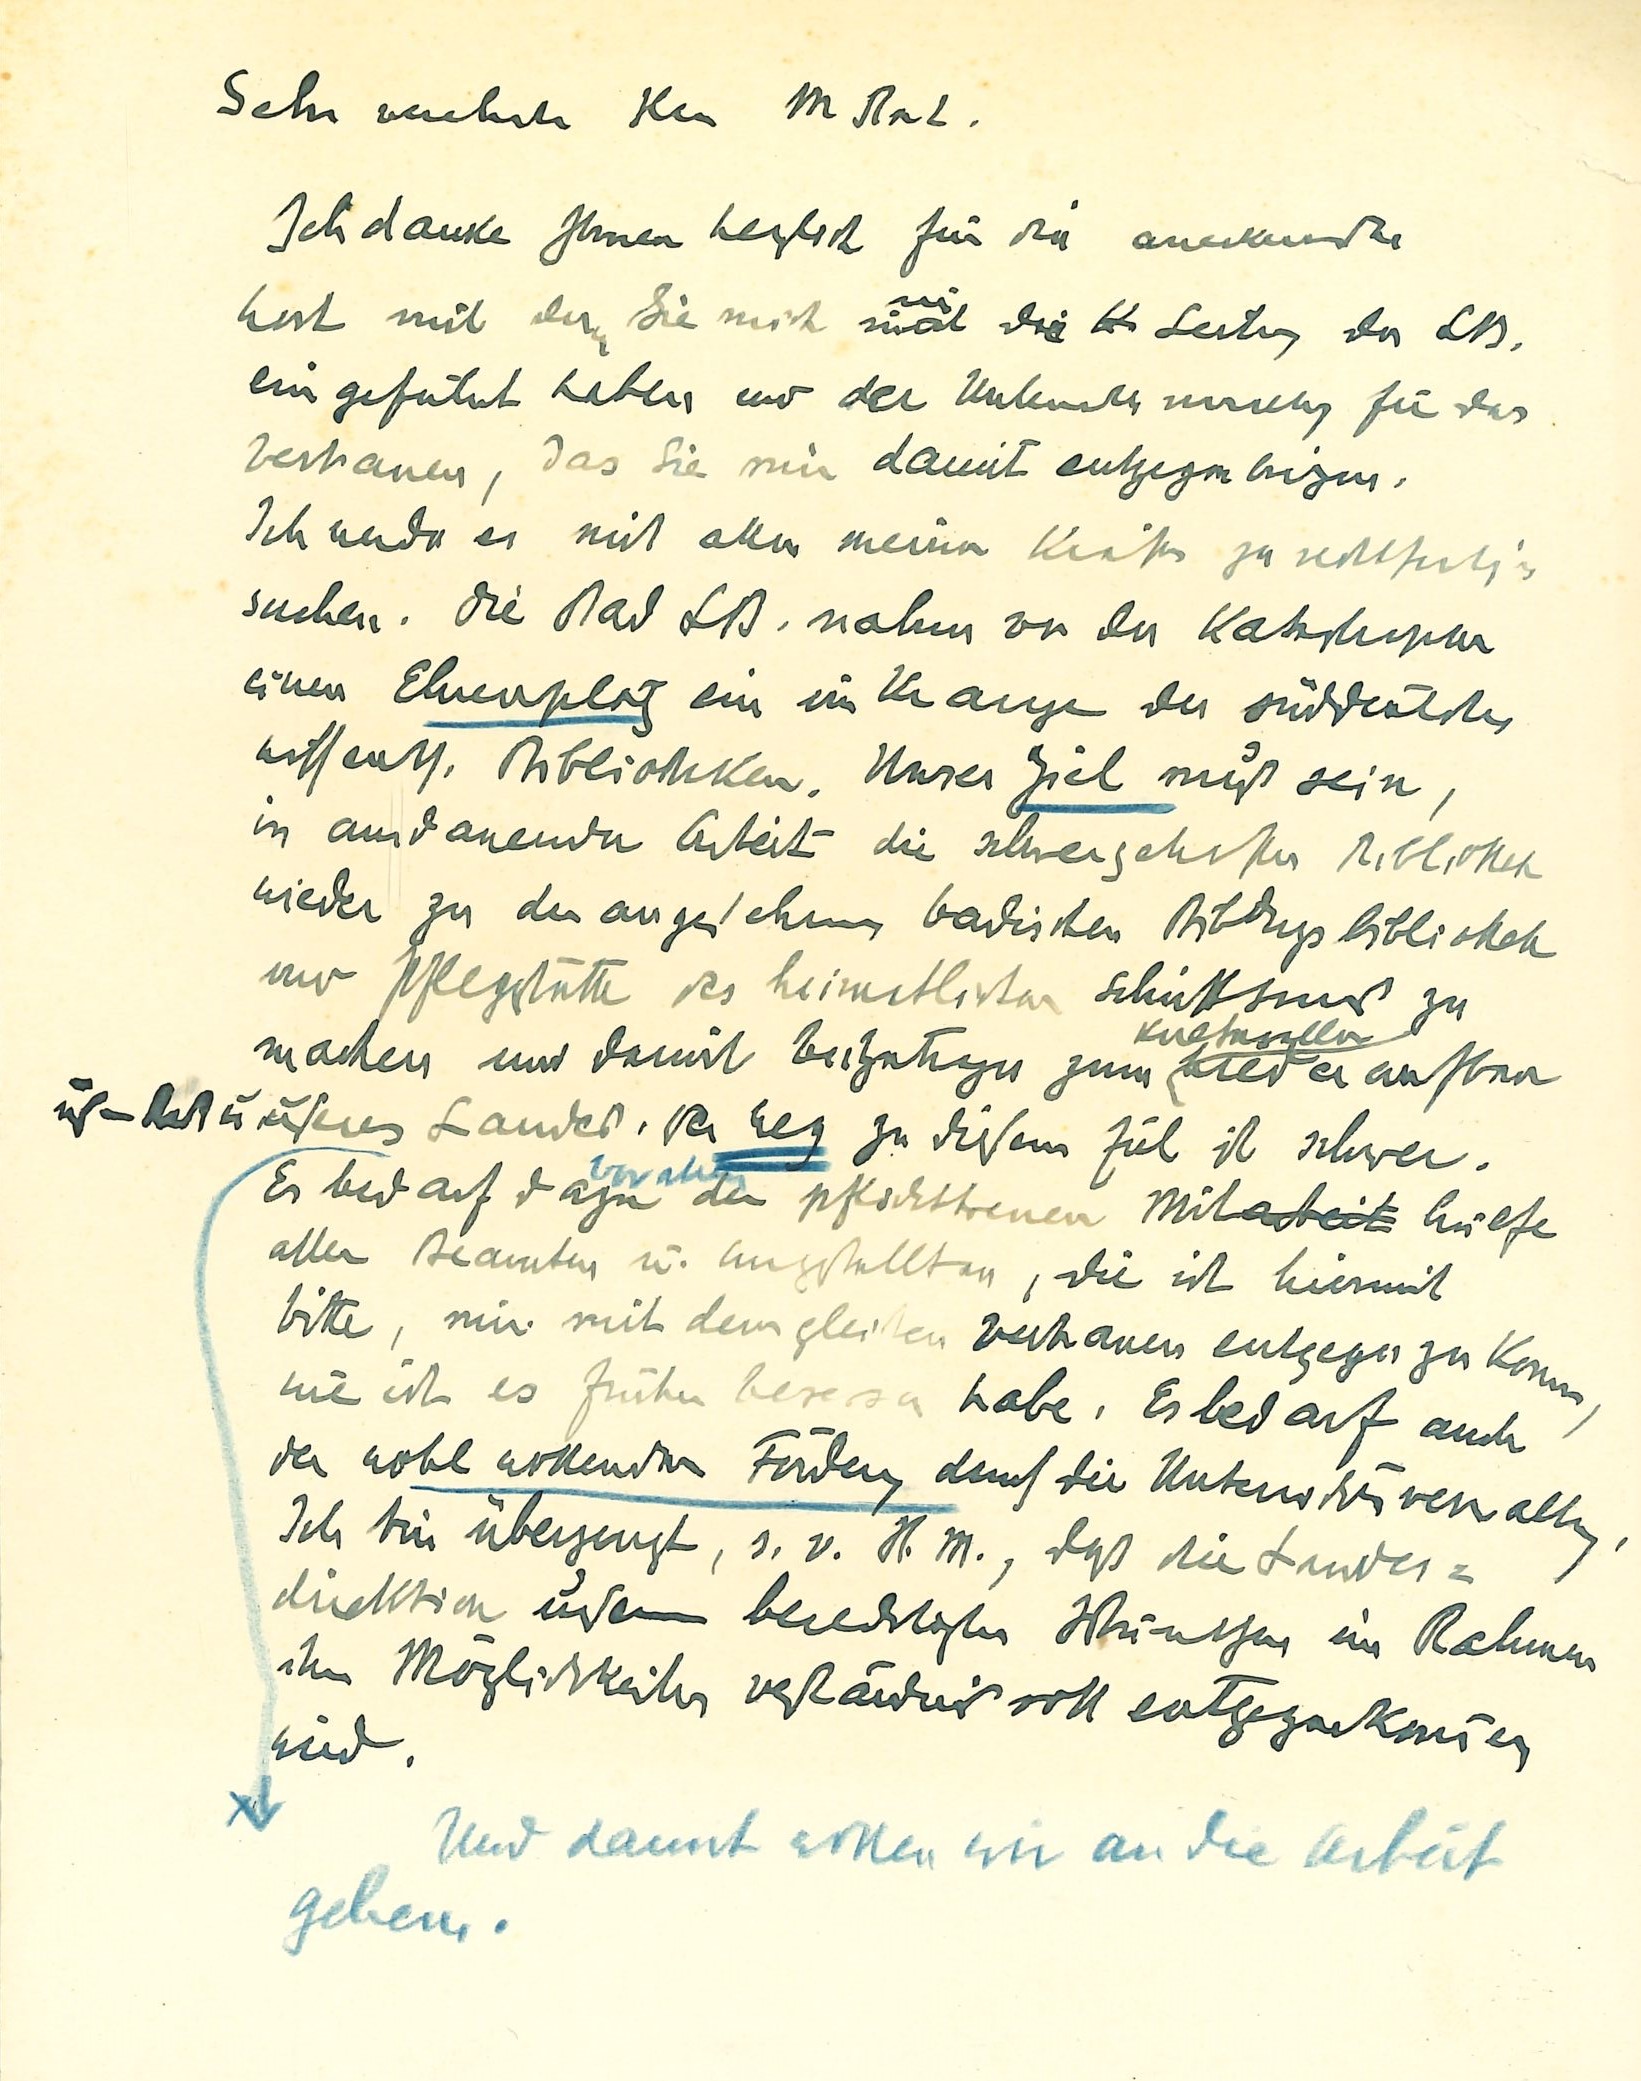 Sehr verehrter Herr M Rat.
Ich danke Ihnen herzlich für die anerkennden
Wort mit den Sie mich in die Leitung der LB.
eingeführt haben und der Unterrichtsverwaltg für das
Vertrauen, das Sie mir damit entgegenbringen.
Ich werde es mit allen meinen Kräften zu rechtfertigen
suchen. Die Bad LB. nahm vor der Katastrophe
einen Ehrenplatz ein im Kranze der süddeutschen
wissensch. Bibliotheken. Unser Ziel muß sein,
in ausdauernder Arbeit die schwergetroffen Bibliothek
wieder zu der angesehenen badischen Bildungsbibliothek
und Pflegstätte des heimatlichen Schrifttums zu
machen und damit beizutragen zum kulturellen Wiederaufbau
unseres Landes. Der Weg zu diesem Ziel ist schwer.
Es bedarf dazu vor allem der pflichttreuen Mitarbeit hilfe
aller Beamten u. Angestellten, die ich hiermit
bitte, mir mit dem gleichen Vertrauen entgegen zu komm,
wie ich es früher besessen habe. Es bedarf auch
der wohlwollenden Förderg durch die Unterrichtsverwaltg,
Ich bin überzeugt, s. v. H. M., daß die Landes=
direktion unseren berechtigten Wünschen im Rahmen
ihrer Möglichkeiten verständnisvoll entgegenkommen
wird.
Und damit wollen wir an die Arbeit
gehen.